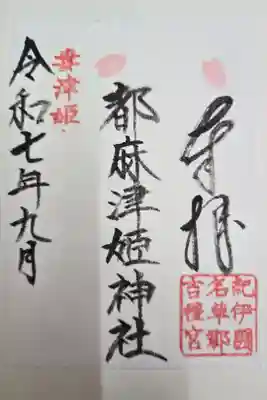 奉拝
紀伊國
名草郡
吉禮宮
都麻津姫神社
妻津姫
令和七年九月